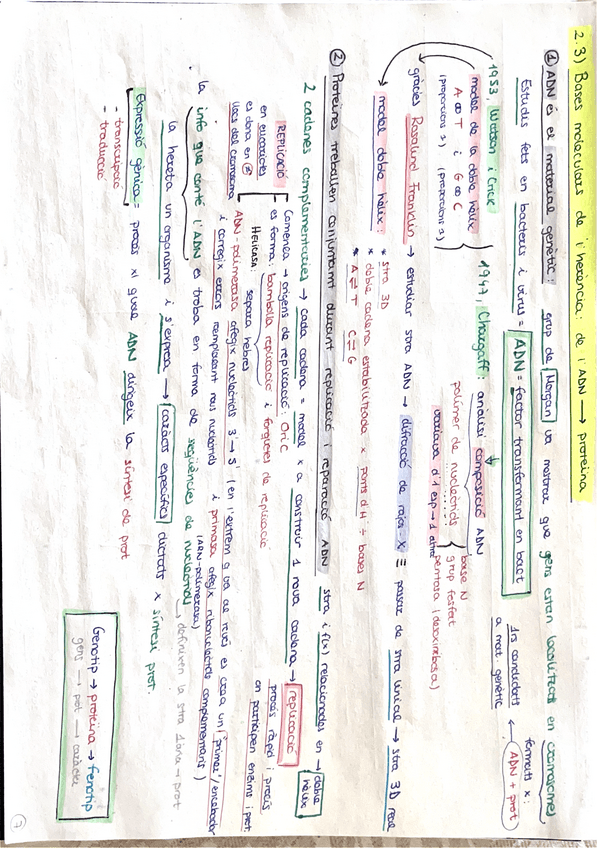 2.3) Bases moleculars de l'herència: de l'ADN → proteïna
① ADN és el material genètic: grup de Morgan va mostrar que gens estan localitzats en cromosomes
formats x: ADN + prot
1rs candidats a mat. genètic
Estudis fets en bacteris i virus = ADN = factor transformant en bact
1953, Watson i Crick
model de la doble hèlix
A ∞ T i G ∞ C
(proporcions 1) (proporcions 1)
1947, Chargaff: anàlisi composició ADN
polímer de nucleòtids
base N
grup fosfat
pentosa (desoxiribosa)
variava d'1 esp → 1 altre
gràcies Rosalind Franklin → estudiar stra ADN → difracció de raigs-X ≡ passar de stra lineal → stra 3D real
model doble hèlix:
* stra 3D
* doble cadena estabilitzada x ponts d'H ÷ bases N
* A ⇌ T C ⇌ G
② Proteïnes treballen conjuntament durant replicació i reparació ADN
stra i f(x) relacionades en → doble hèlix
2 cadenes complementàries → cada cadena = model x a construir 1 nova cadena → replicació
procés ràpid i precís
on participen enzims i prot
REPLICACIÓ
en eucariotes
es dona en
llocs del cromosoma
Comença → orígens de replicació: OriC
es forma: bombolla replicació i forquetes de replicació
HELICASA: separa hebres
ADN-polimerasa afegix nucleòtids 3' → 5' (en l'extrem
i corregix errors remplaçant nous nucleòtids i primasa afegix ribonucleòtids complementaris)
(ARN-polimerasa)
la info que conté l'ADN es troba en forma de seqüències de nucleòtids
→ definixen la stra 1ària → prot
la hereta un organisme i s'expressa → caràcters específics dictats x síntesi prot.
Expressió gènica = procés x qual ADN dirigeix la síntesi de prot
- transcripció
- traducció
Genotip → proteïna → fenotip
gens → prot → caràcter